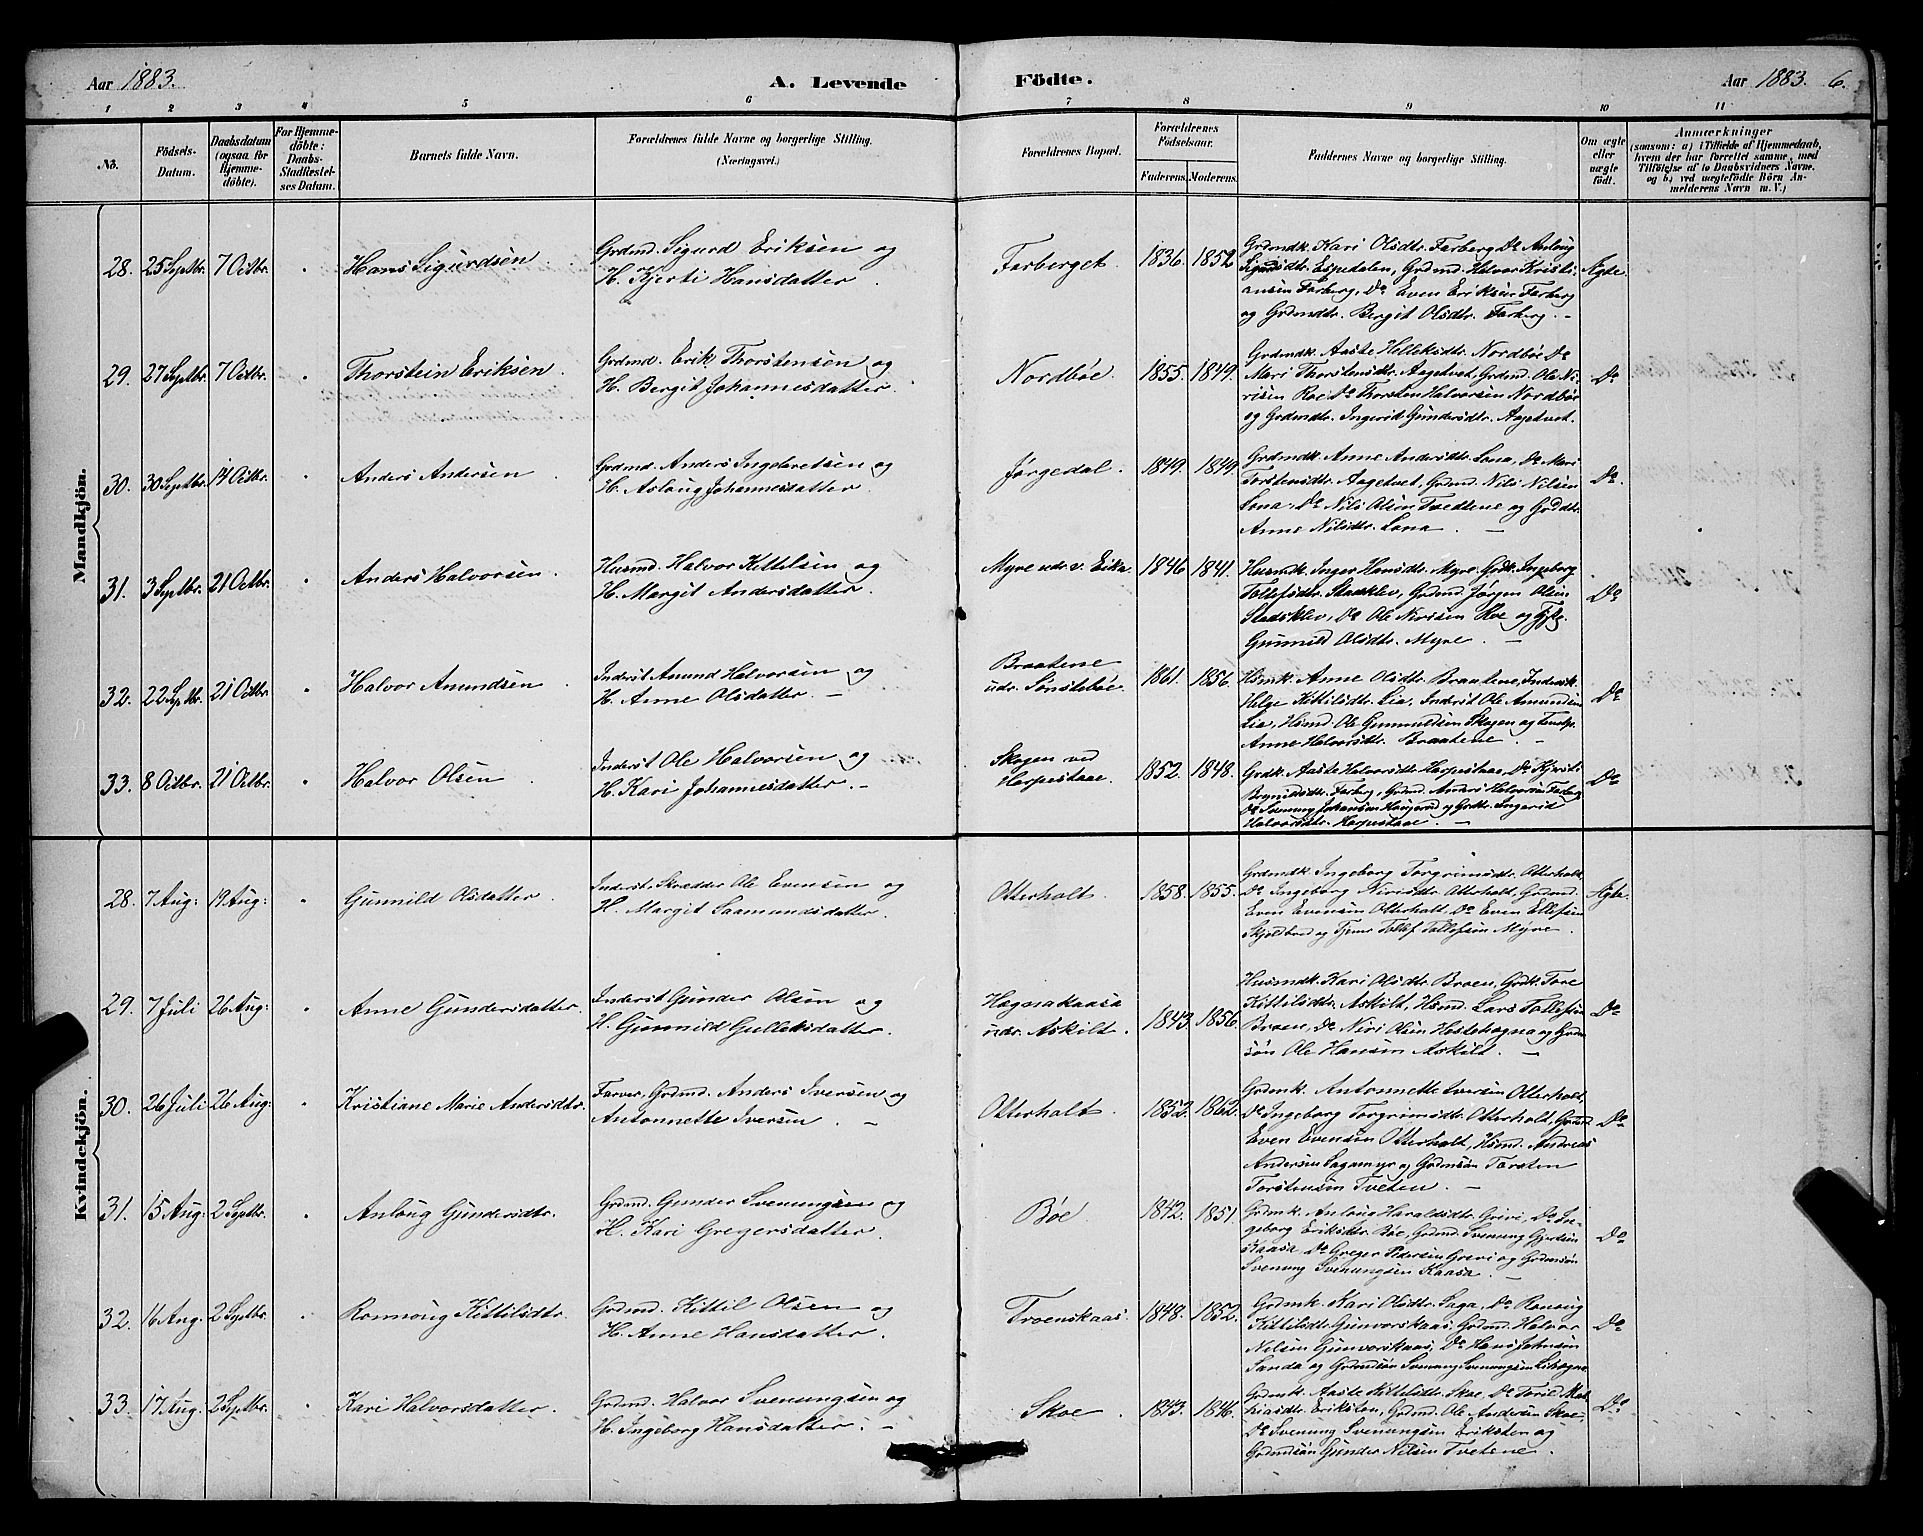 Aar 1883.
A. Levende
Födte.
Aar 1883. 6.
1 2 3 4 5 6 7 8 9 10 11
No.
Födsels-
Datum.
Daabsdatum
(ogsaa for
Hjemme-
döbte).
For Hjemme-
döbte:
Daabs-
Stadfæstel-
ses Datum.
Barnets fulde Navn.
Forældrenes fulde Navne og borgerlige Stilling.
(Næringsvei.)
Forældrenes Bopæl.
Forældrenes
Födselsaar.
Faderens. Moderens.
Faddernes Navne og borgerlige Stilling.
Om ægte
eller
uægte
født.
Anmærkninger
(saasom: a) i Tilfælde af Hjemmedaab,
hvem der har forrettet samme, med
Tilföielse af to Daabsvidners Navne.
og b) ved uægtefödte Börn An-
melderens Navn m. V.)
Mandkjön.
28. 25 Septbr. 7 Octbr. " Hans Sigurdsen
Grdmd. Sigurd Eriksen og
H. Kjersti Hansdatter.
Farberget. 1836. 1852
Grdmdk. Kari Olsdtr. Farberg, Do Anloug
Sigurdsdtr. Espedalen, Grdmd. Halvor Kristi-
ansen Farberg, Do Even Eriksen Farberg
og Grdmdtr. Bergit Olsdtr. Farberg. –
Ægte
29. 27 Septbr. 7 Octbr. " Thorstein Eriksen.
Grdmd. Erik Thorstensen og
H. Bergit Johannesdatter.
Nordböe. 1855. 1849.
Grdmdk. Aaste Helleksdtr. Nordböe Do
Mari Thorstensdtr. Aagetvet, Grdmd. Ole Ni-
risen Roe Do Thorsten Halvorsen Nordbör
og Grdmdtr. Ingerid Gundersdtr. Aagetvet.
Do
30. 30 Septbr. 14 Octbr. " Anders Andersen
Grdmd. Anders Ingebretsen og
H. Aslaug Johannesdatter.
Jörgedal. 1849. 1849
Grdmdk. Anne Andersdtr. Lona, Do Mari
Torstensdtr. Aagetvet, Grdmd. Nils Nilsen
Lona, Do Nils Olsen Tvedtene og Grddtr.
Anne Nilsdtr. Lona. –
Do.
31. 3 Septbr. 21 Octbr. " Anders Halvorsen.
Husmd. Halvor Kittelsen og
H. Margit Andersdatter.
Myre udr. v. Eika. 1846 1841.
Husmdk. Inger Hansdtr. Myre, Grdk. Ingeborg
Tollefsdtr. Staskler, Grdmd. Jörgen Olsen
Stadsklev, Do Ole Nirisen Roe og Tjfte.
Gunnild Olsdtr. Myre. –
Do
32. 22 Septbr. 21 Octbr. " Halvor Amundsen
Inderst Amund Halvorsen og
H. Anne Olsdatter. –
Braatene
udr. Sönsteböe. 1861. 1856.
Hsmk. Anne Olsdtr. Braatene, Inderstk.
Helge Kittilsdtr. Lia, Inderst Ole Amundsen
Lia, Hsmd. Ole Gunnuldsen Skogen og
Anne Halvorsdtr. Braatene. –
Do
33. 8 Octbr. 21 Octbr. " Halvor Olsen
Inderst Ole Halvorsen og
H. Kari Johannesdatter. –
Skogen ved
Harpestaae. 1852. 1848.
Grdk. Aaste Halvorsdtr. Harpestaae, Do Kjersti
Brynildsdtr. Farberg, Grdmd. Anders Halvorsen Farberg
Do Svenung Johansen Haugerud og Grdtr. Ingerid
Halvorsdtr. Harpestaae. –
Do
Kvindekjön.
28. 7 Aug: 19 Aug: " Gunnild Olsdatter.
Inderst, Skrædder Ole Evensen og
H. Margit Saamundsdatter.
Otterholt. 1858. 1855.
Grdmdk Ingeborg Torgrimsdtr. Otterholt,
Do Ingeborg Nirisdtr. Otterholt, Grdmd.
Even Evensen Otterholt, Do Even Ellefsen
Skjelbred og Tjener Tollef Tollefsen Myre.
Ægte.
29. 7 Juli 26 Aug: " Anne Gundersdatter.
Inderst Gunder Olsen og
H. Gunnild Gulleksdatter.
Hagnakaasa
udr. Askilt. 1843. 1856.
Husmdk. Kari Olsdtr. Broen, Grdk. Tore
Kittilsdtr. Askilt, Hsmd. Lars Tollefsen
Broen, Do Niri Olsen Hestehagna og Grdm-
sön Ole Hansen Askilt. –
Do
30. 26 Juli 26 Aug: " Kristiane Marie Andersdtr.
Farver, Grdmd. Anders Iversen og
Antonnette Iversen. –
Otterholt. 1852. 1862.
Grdmk. Antonnette Iversen Otterholt,
Do Ingeborg Torgrimsdtr. Otterholt, Grdmd.
Even Evensen Otterholt, Hsmd. Andreas
Andersen Sagamyr og Grdmsön Torsten
Torstensen Tveten. –
Do
31. 15 Aug: 2 Septbr. " Anloug Gundersdtr.
Grdmd. Gunder Svenungsen og
H. Kari Gregersdatter.
Böe 1842. 1851.
Grdmk. Anloug Haraldsdtr. Grivi, Do In-
geborg Eriksdtr. Böe, Grdmd. Svenung Gjertsen
Kaasa, Do Greger Pedersen Grevi og Grdmsön
Svenung Svenungsen Kaasa. –
Do
32. 16 Aug. 2 Septbr. " Ronnoug Kittilsdtr.
Grdmd. Kittil Olsen og
H. Anne Hansdatter.
Troenskaas. 1848. 1852.
Grdmk. Kari Olsdtr. Saga, Do Ronoug
Kittilsdtr. Gunvorskaas, Grdmd. Halvor
Nilsen Gunvorskaas, Do Hans Johnsen
Sanda og Grdmsön Svenung Svenungsen
Do
33. 17 Aug. 2 Septbr. " Kari Halvorsdatter.
Grdmd. Halvor Svenungsen og
H. Ingeborg Hansdatter. –
Skoe. 1843. 1846.
Grdmk. Aaste Kittilsdtr. Skoe, Do Toril Mat-
hiasdtr. Eriksten, Grdmd. Ole Andersen Skoe,
Do Svenung Svenungsen Eriksten og
Grdmsön Gunder Nilsen Tvetene.
Do